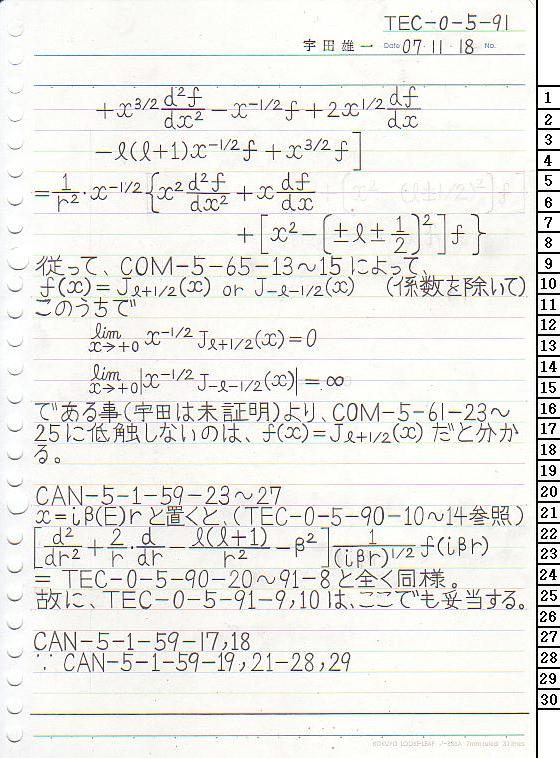 TEC-0-5-91
宇田雄一 Date 07・11・18 No.
+x^{3/2} d²f/dx² - x^{-1/2} f + 2x^{1/2} df/dx
-ℓ(ℓ+1)x^{-1/2} f + x^{3/2} f]
= 1/r² · x^{-1/2} {x² d²f/dx² + x df/dx
+ [x² - (±ℓ ± 1/2)²] f}
従って、COM-5-65-13～15によって、
f(x)=J_{ℓ+1/2}(x) or J_{-ℓ-1/2}(x) (係数を除いて)
このうちで
lim x→+0 x^{-1/2} J_{ℓ+1/2}(x)=0
lim x→+0 |x^{-1/2} J_{-ℓ-1/2}(x)|=∞
である事(宇田は未証明)より、COM-5-61-23～
25に低触しないのは、f(x)=J_{ℓ+1/2}(x)だと分か
る。
CAN-5-1-59-23～27
x=iβ(E)rと置くと、(TEC-0-5-90-10～14参照)
[d²/dr² + 2/r · d/dr - ℓ(ℓ+1)/r² - β²] 1/(iβr)^{1/2} f(iβr)
= TEC-0-5-90-20～91-8と全く同様。
故に、TEC-0-5-91-9,10は、ここでも妥当する。
CAN-5-1-59-17,18
∵ CAN-5-1-59-19,21-28,29
1
2
3
4
5
6
7
8
9
10
11
12
13
14
15
16
17
18
19
20
21
22
23
24
25
26
27
28
29
30
KOKUYO LOOSE-LEAF 7mm ruled 31 lines